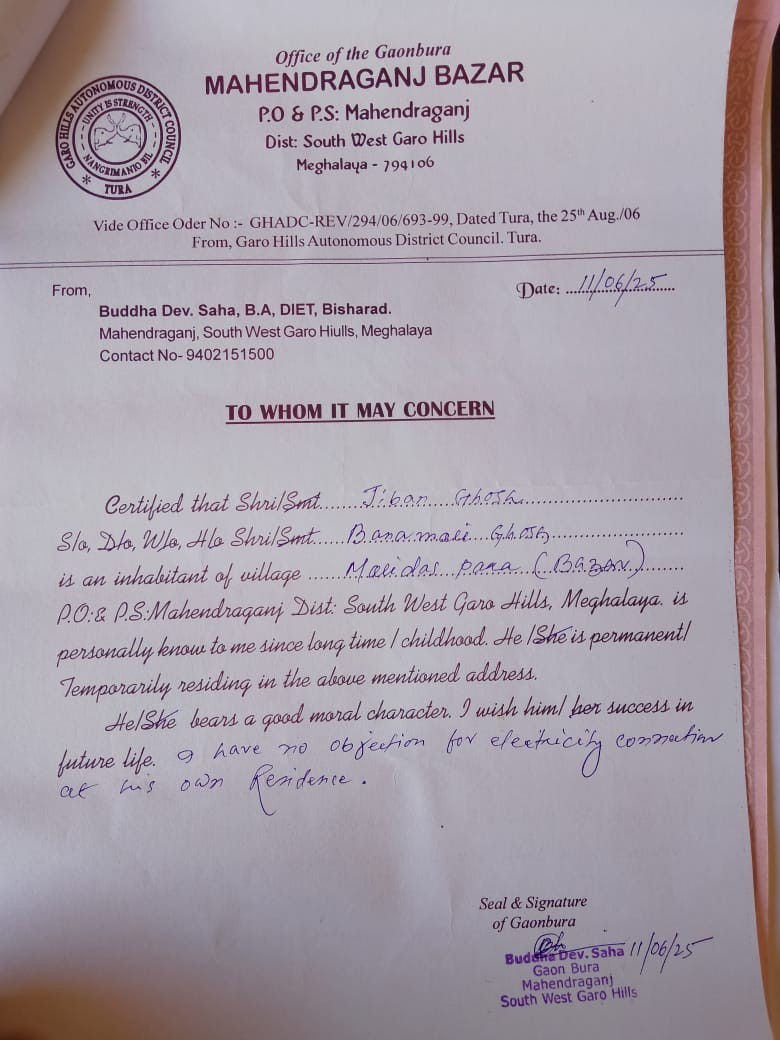 Office of the Gaonbura
MAHENDRAGANJ BAZAR
P.O & P.S: Mahendraganj
Dist: South West Garo Hills
Meghalaya - 794106
GARO HILLS AUTONOMOUS DISTRICT COUNCIL
UNITY IS STRENGTH
NANGRIMANIO BIL
* TURA *
Vide Office Oder No :- GHADC-REV/294/06/693-99, Dated Tura, the 25th Aug./06
From, Garo Hills Autonomous District Council. Tura.
From,
Date: ...11/06/25...
Buddha Dev. Saha, B.A, DIET, Bisharad.
Mahendraganj, South West Garo Hiulls, Meghalaya
Contact No- 9402151500
TO WHOM IT MAY CONCERN
Certified that Shri/Smt.......Jiban Ghosh..........
S/o, D/o, W/o, H/o Shri/Smt.....Banamali Ghosh..........
is an inhabitant of village ......Malidas para (Bazar)......
P.O:& P.S:Mahendraganj Dist: South West Garo Hills, Meghalaya. is
personally know to me since long time / childhood. He /She is permanent/
Temporarily residing in the above mentioned address.
He/She bears a good moral character. I wish him/ her success in
future life. I have no objection for electricity connation
at his own Residence.
Seal & Signature
of Gaonbura
Buddha Dev. Saha 11/06/25
Gaon Bura
Mahendraganj
South West Garo Hills